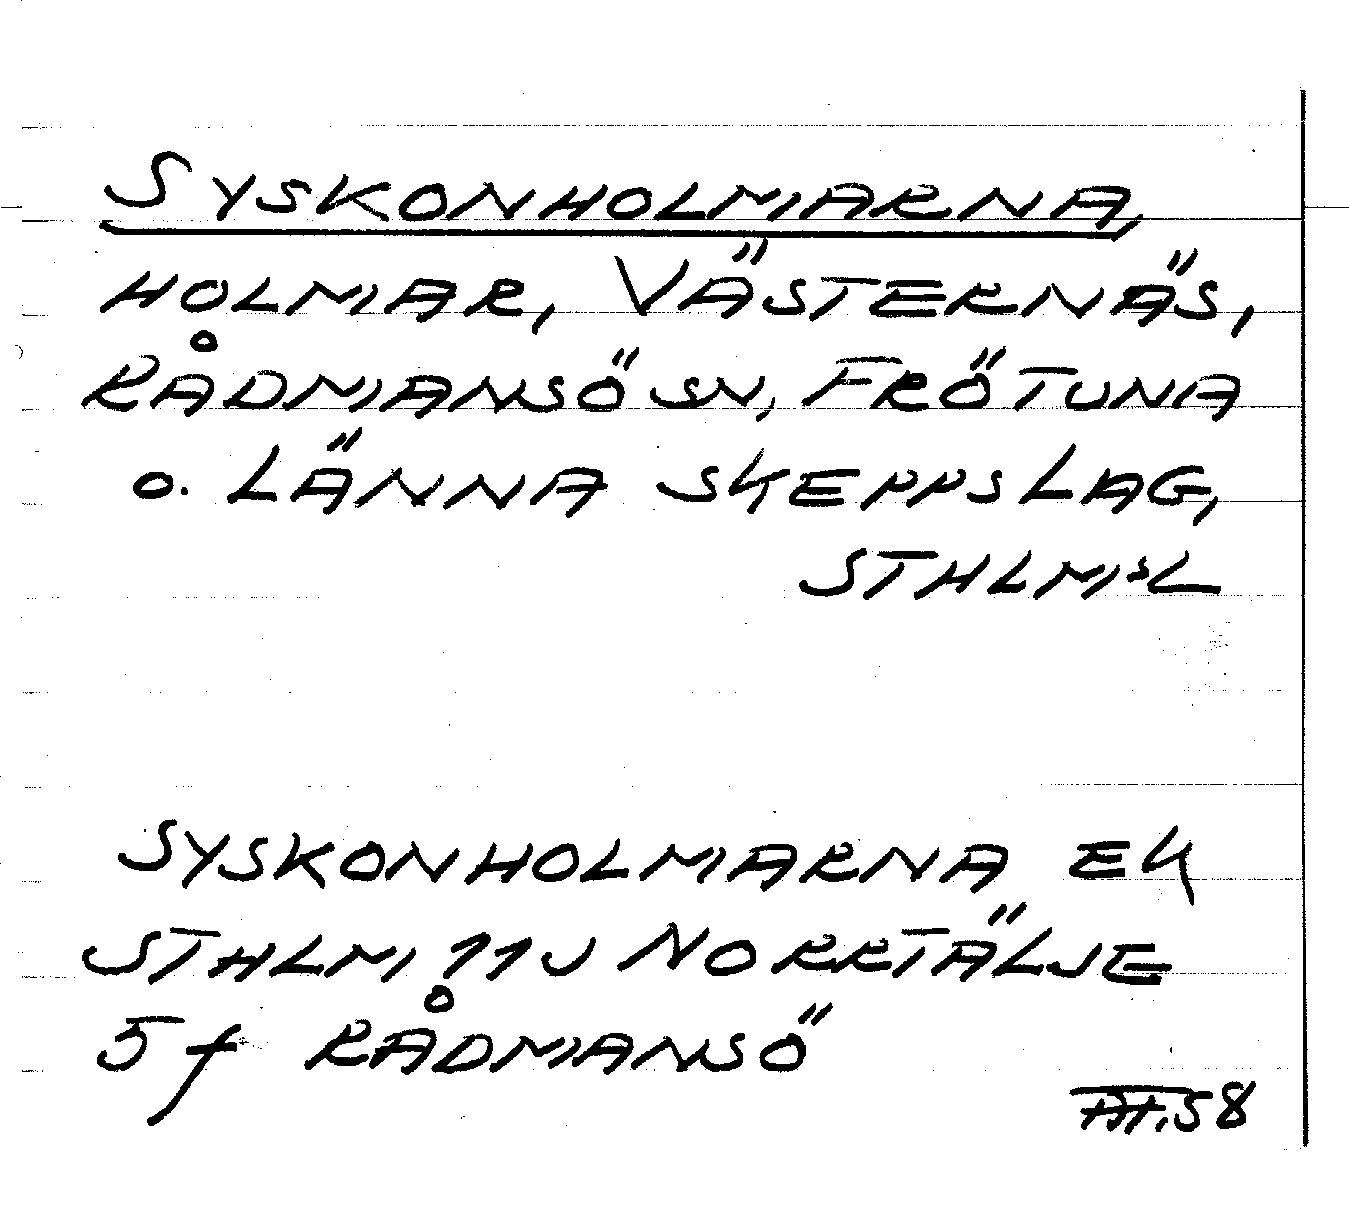 SYSKONHOLMARNA,
HOLMAR, VÄSTERNÄS,
RÅDMANSÖ SN, FRÖTUNA
o. LÄNNA SKEPPSLAG,
STHLMSL
SYSKONHOLMARNA EK
STHLM 11J NORRTÄLJE
5f RÅDMANSÖ